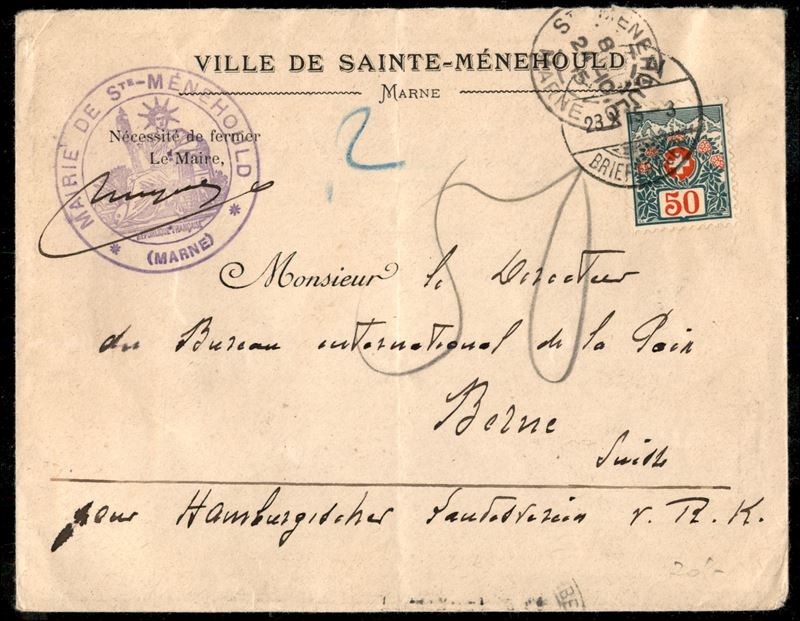 VILLE DE SAINTE-MÉNEHOULD
MARNE
MAIRIE DE STE-MÉNEHOULD
RÉPUBLIQUE FRANÇAISE
(MARNE)
Nécessité de fermer
Le Maire,
2
STE MENEHOULD
MARNE
23
3
BRIEF
50
50
Monsieur le Directeur
du Bureau international de la Paix
Berne
Suisse
pour Hamburgischer Landesverein v. R. K.
20/-
BE